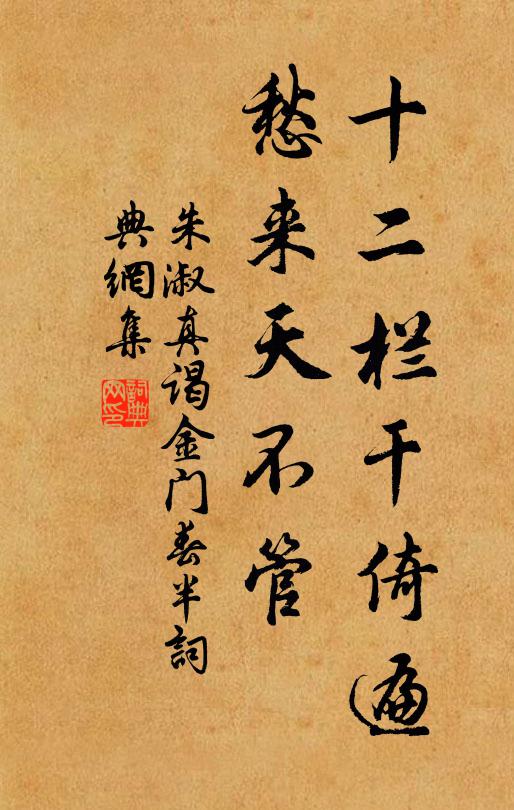 十二栏干倚遍
愁来天不管
朱淑真谒金门春半詞
典網集
詞典网印